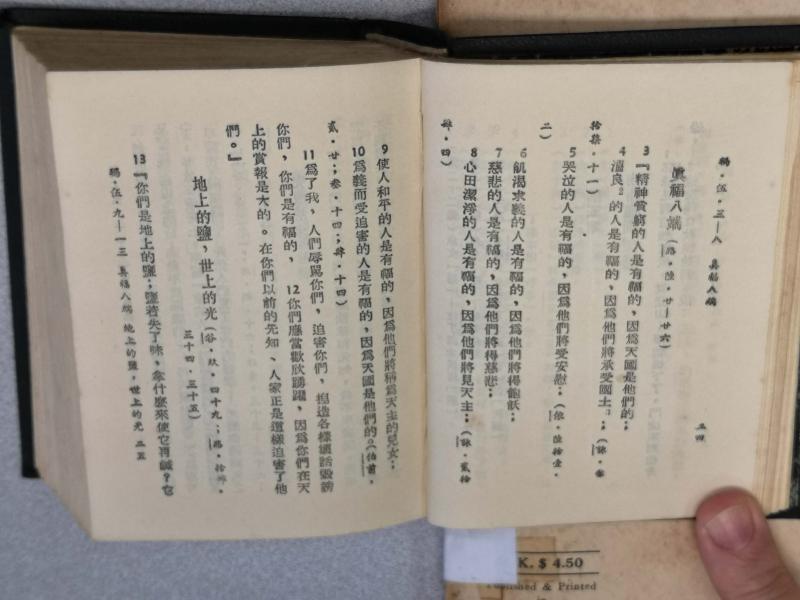 瑪．伍．三—八　眞福八端　二四
眞福八端（路．陸．廿—廿六）
3『精神貧窮的人是有福的，因爲天國是他們的；
4溫良²的人是有福的，因爲他們將承受國土³；（詠．叁
拾柒．十一）
5哭泣的人是有福的，因爲他們將受安慰；（依．陸拾壹．
二）
6飢渴求義的人是有福的，因爲他們將得飽飫；
7慈悲的人是有福的，因爲他們將得慈悲；
8心田潔淨的人是有福的，因爲他們將見天主；（詠．貳拾
肆．四）
9使人和平的人是有福的，因爲他們將稱爲天主的兒女；
10爲義而受迫害的人是有福的，因爲天國是他們的。（伯前．
貳．廿；叁．十四；肆．十四）
11爲了我，人們辱罵你們，迫害你們，揑造各樣壞話毀謗
你們，你們是有福的，12你們應當歡欣踴躍，因爲你們在天
上的賞報是大的。在你們以前的先知、人家正是這樣迫害了他
們。』
地上的鹽，世上的光（谷．玖．四十九；路．拾肆．
三十四．三十五）
13『你們是地上的鹽；鹽若失了味，拿什麽來使它再鹹？它
瑪．伍．九—一三　眞福八端　地上的鹽，世上的光　二五
K. $ 4.50
Published & Printed